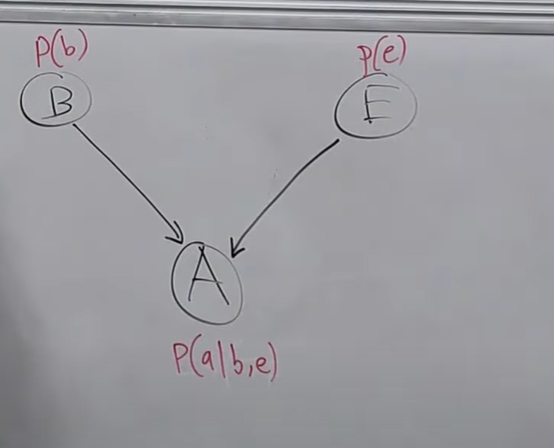 P(b) p(e)
B E
A
P(a|b,e)